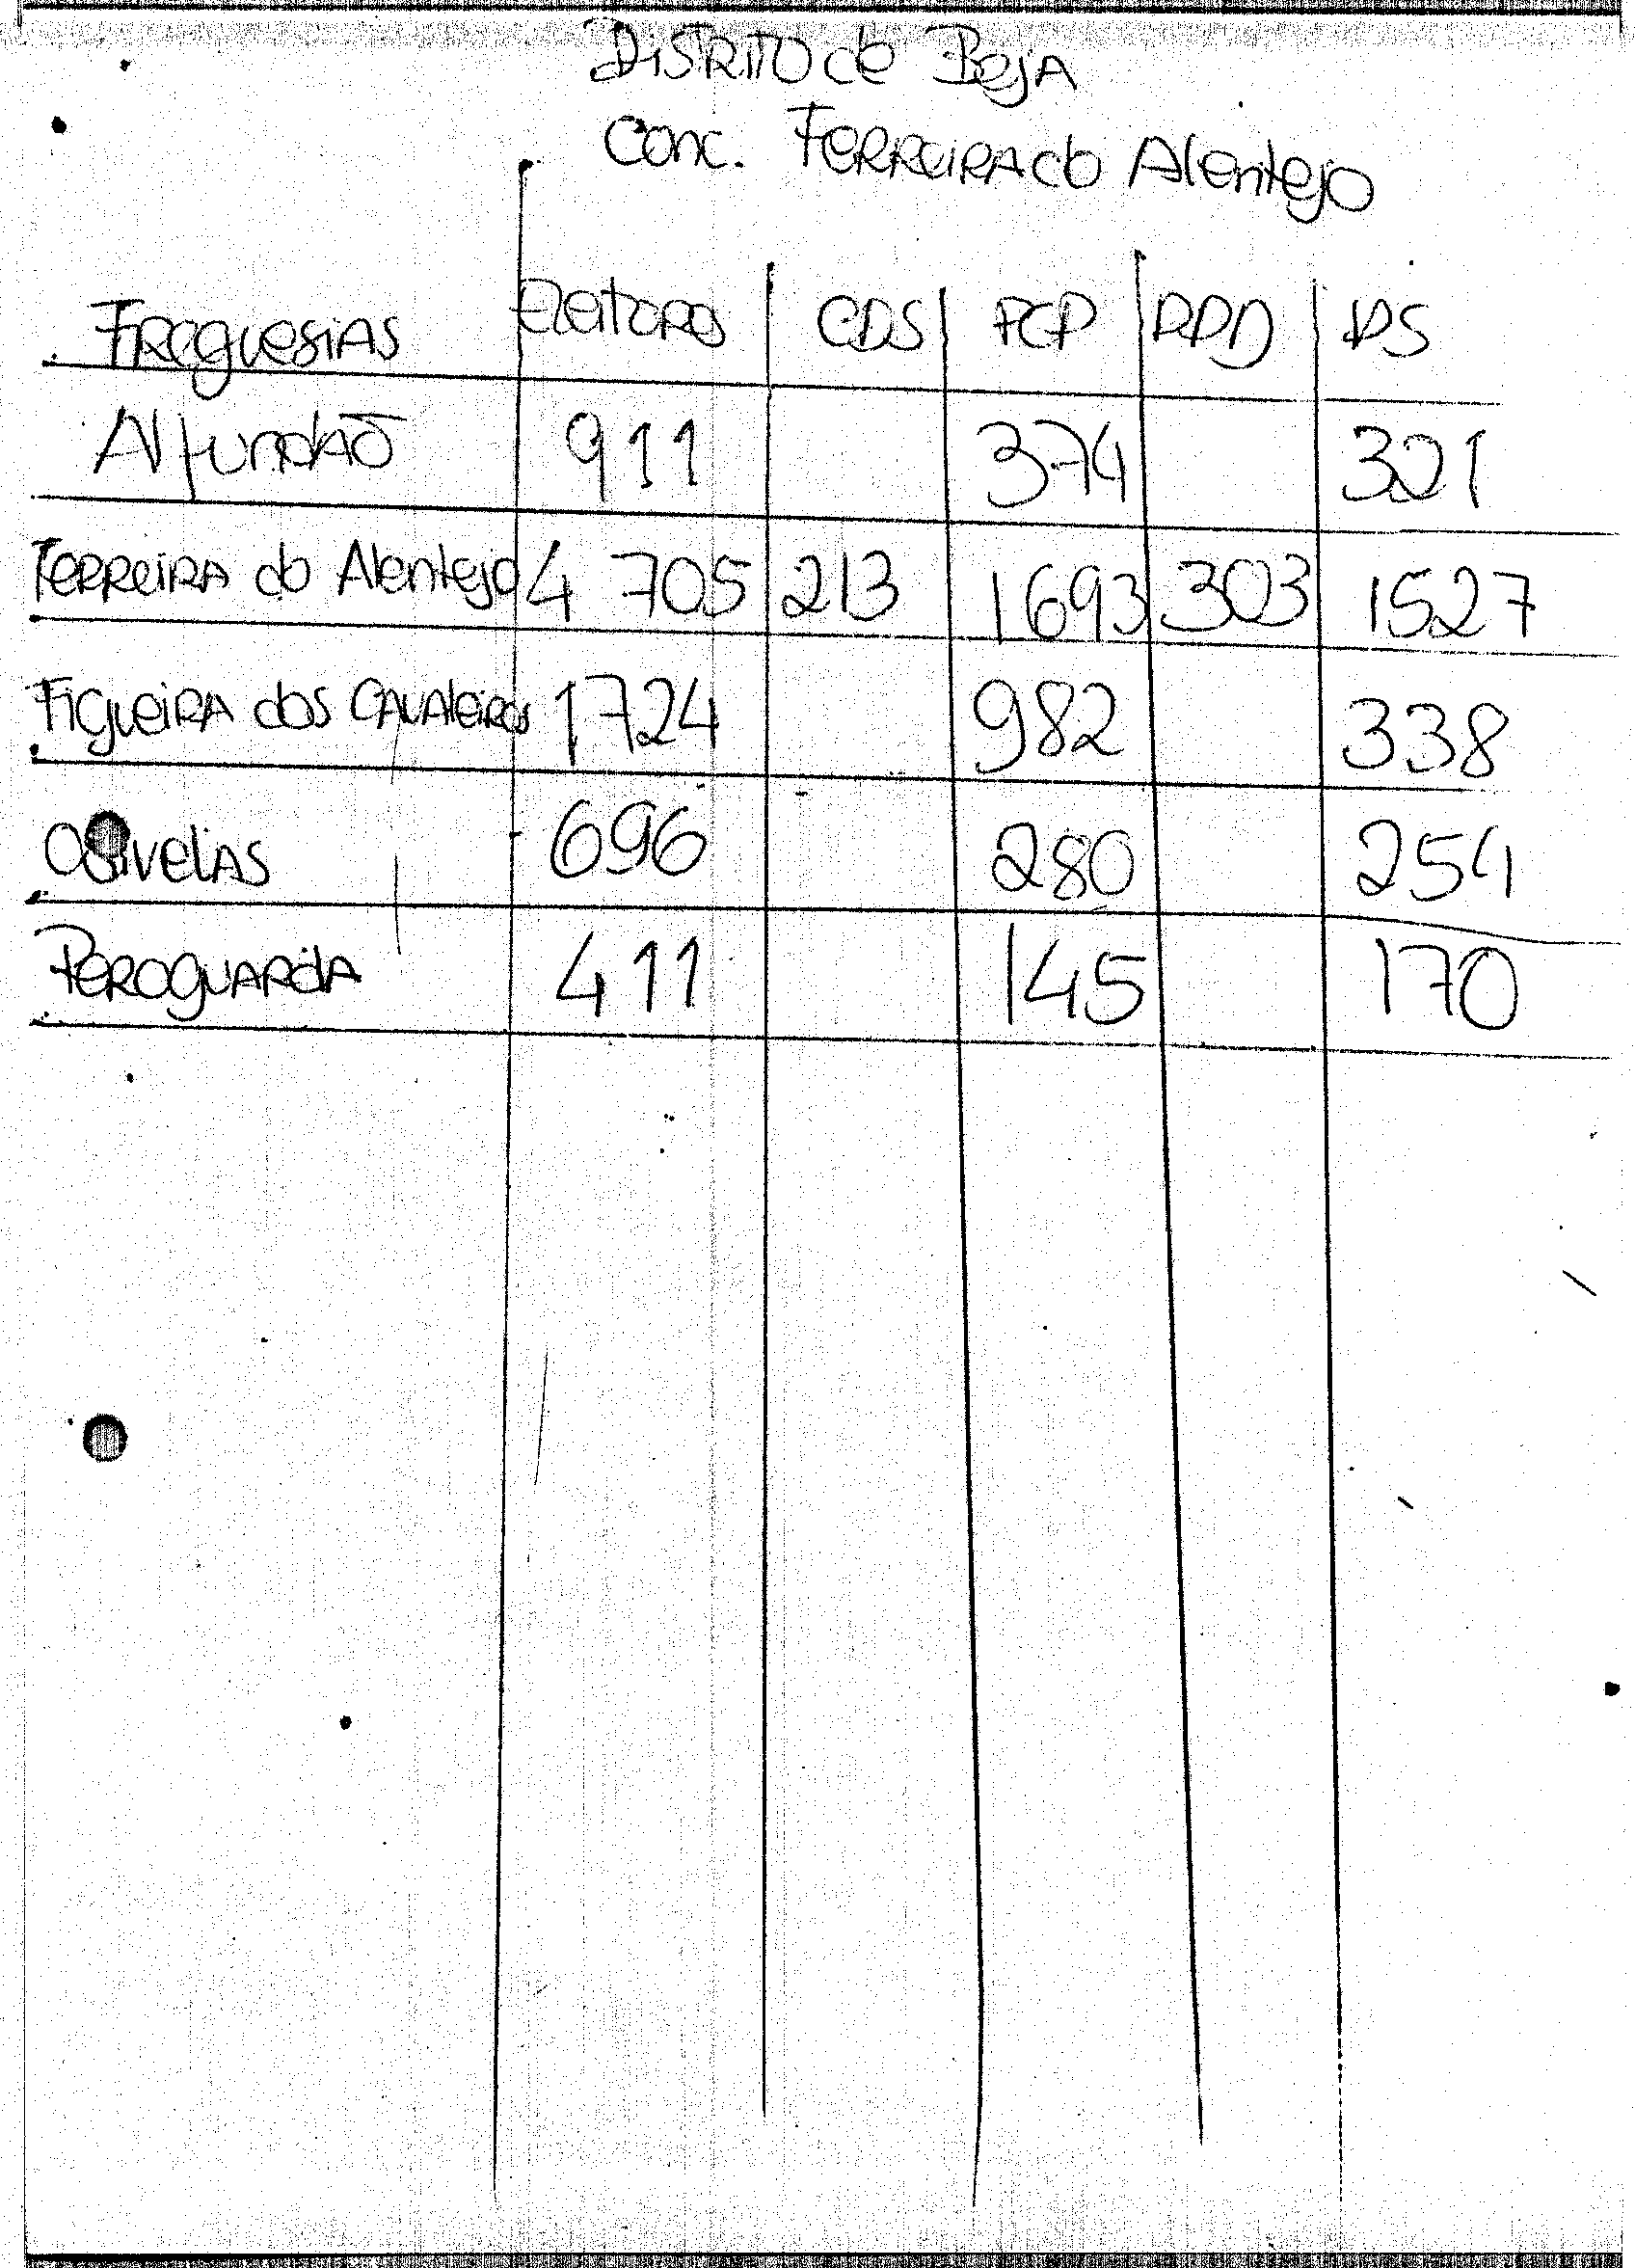 Distrito de Beja
Conc. Ferreira do Alentejo
Freguesias Eleitores CDS PCP PPD PS
Alfundão 911 374 321
Ferreira do Alentejo 4 705 213 1693 303 1527
Figueira dos Cavaleiros 1724 982 338
Odivelas 696 280 254
Peroguarda 411 145 170